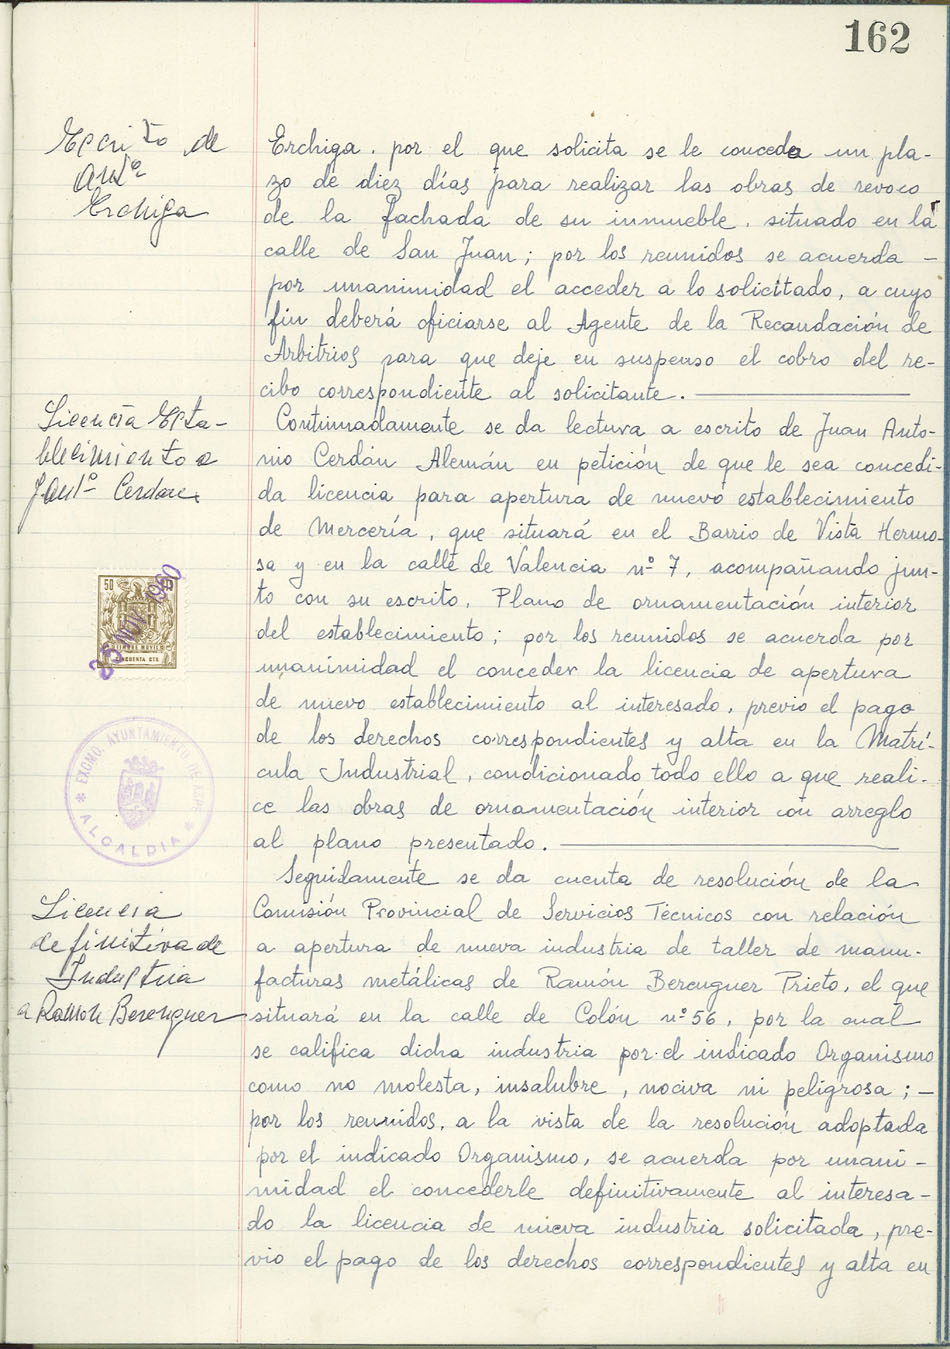 162
Escrito de
Antº
Erchiga
Erchiga. por el que solicita se le conceda un pla-
zo de diez días para realizar las obras de revoco
de la fachada de su inmueble, situado en la
calle de San Juan; por los reunidos se acuerda -
por unanimidad el acceder a lo solicitado, a cuyo
fin deberá oficiarse al Agente de la Recaudación de
Arbitrios para que deje en suspenso el cobro del re-
cibo correspondiente al solicitante.
Licencia Esta-
blecimiento a
J. Antº Cerdán
Continuadamente se da lectura a escrito de Juan Anto-
nio Cerdán Alemán en petición de que le sea concedi-
da licencia para apertura de nuevo establecimiento
de Mercería, que situará en el Barrio de Vista Hermo-
sa y en la calle de Valencia nº 7, acompañando jun-
to con su escrito, Plano de ornamentación interior
del establecimiento; por los reunidos se acuerda por
unanimidad el conceder la licencia de apertura
de nuevo establecimiento al interesado, previo el pago
de los derechos correspondientes y alta en la Matrí-
cula Industrial, condicionado todo ello a que reali-
ce las obras de ornamentación interior con arreglo
al plano presentado.
50
25 NOV 1960
TIMBRE MOVIL
CINCUENTA CTS
* EXCMO. AYUNTAMIENTO DE ASPE *
ALCALDIA
Licencia
definitiva de
Industria
a Ramón Berenguer
Seguidamente se da cuenta de resolución de la
Comisión Provincial de Servicios Técnicos con relación
a apertura de nueva industria de taller de manu-
facturas metálicas de Ramón Berenguer Prieto, el que
situará en la calle de Colón nº 56, por la cual
se califica dicha industria por el indicado Organismo
como no molesta, insalubre, nociva ni peligrosa; -
por los reunidos, a la vista de la resolución adoptada
por el indicado Organismo, se acuerda por unani-
midad el concederle definitivamente al interesa-
do la licencia de nueva industria solicitada, pre-
vio el pago de los derechos correspondientes y alta en